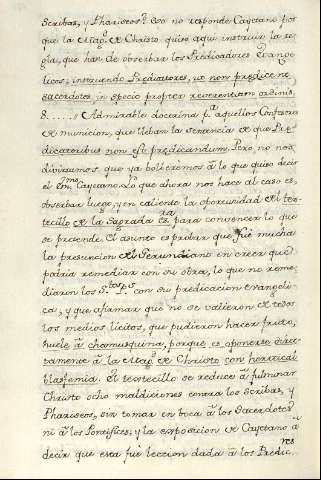 Scribas, y Phariseos? Eso no responde Cayetano por
que la Mag.d de Christo quiso aqui instruir la re
gla, que han de obserbar los Predicadores Evange
licos; instruendo Predicatores, ut non prædicent
sacerdotes in specie propter reverentiam ordinis.
8......s Admirable doctrina p.a aquellos Confesores
de municion, que lleban la sentencia de que Præ
dicatoribus non est prædicandum. Pero no nos
divirtamos, que ya bolveremos â lo que quiso decir
el Em.mo Cayetano. Lo que ahora nos hace al caso es,
obserbar luego, y en caliente la oportunidad del tex-
tecillo de la Sagrada Es.ra para convencer lo que
se pretende. El asunto es probar que fuê mucha
la presuncion del Gerundiano en creer que
podria remediar con su obra, lo que no reme
diaron los S.tos P.s con su predicacion evangeli
ca; y que afirmar que no se valieron de todos
los medios licitos, que pudieron hacer fruto,
huele â chamusquina, porque es oponerse direc-
tamente â la Mag.d de Christo con horrical
blasfemia. El textecillo se reduce â fulminar
Christo ocho maldiciones contra los Scribas, y
Phariseos, sin tomar en boca â los Sacerdotes
ni â los Pontifices; y la exposicion de Cayetano â
decir que esta fue leccion dada â los Predic.res